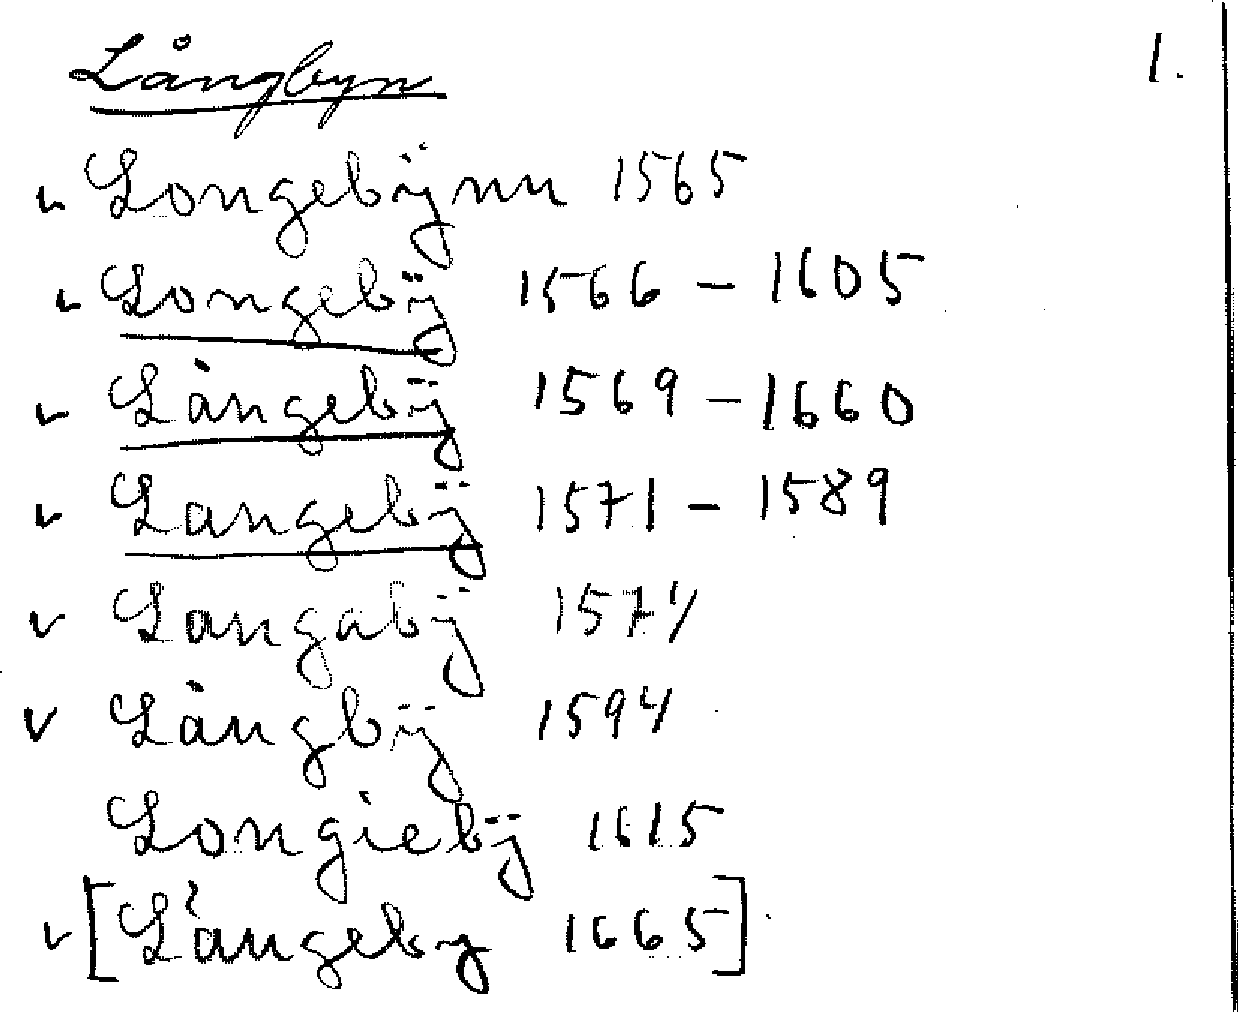 Långbyn 1.
v Longebÿnn 1565
v Longebÿ 1566 – 1605
v Långebÿ 1569 – 1660
v Langebÿ 1571 – 1589
v Langabÿ 1574
v Långbÿ 1594
Longiebÿ 1615
v [Långeby 1665]